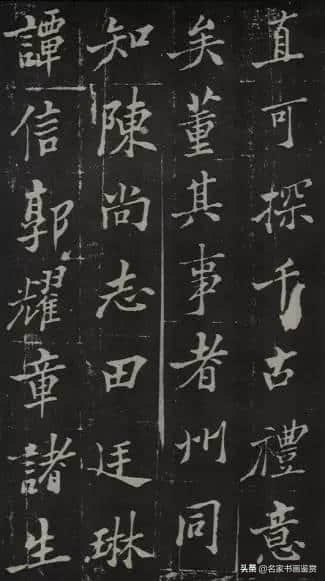 直可探千古禮意
矣董其事者州同
知陳尚志田廷琳
譚信郭耀章諸生
头条 @名家书画鉴赏